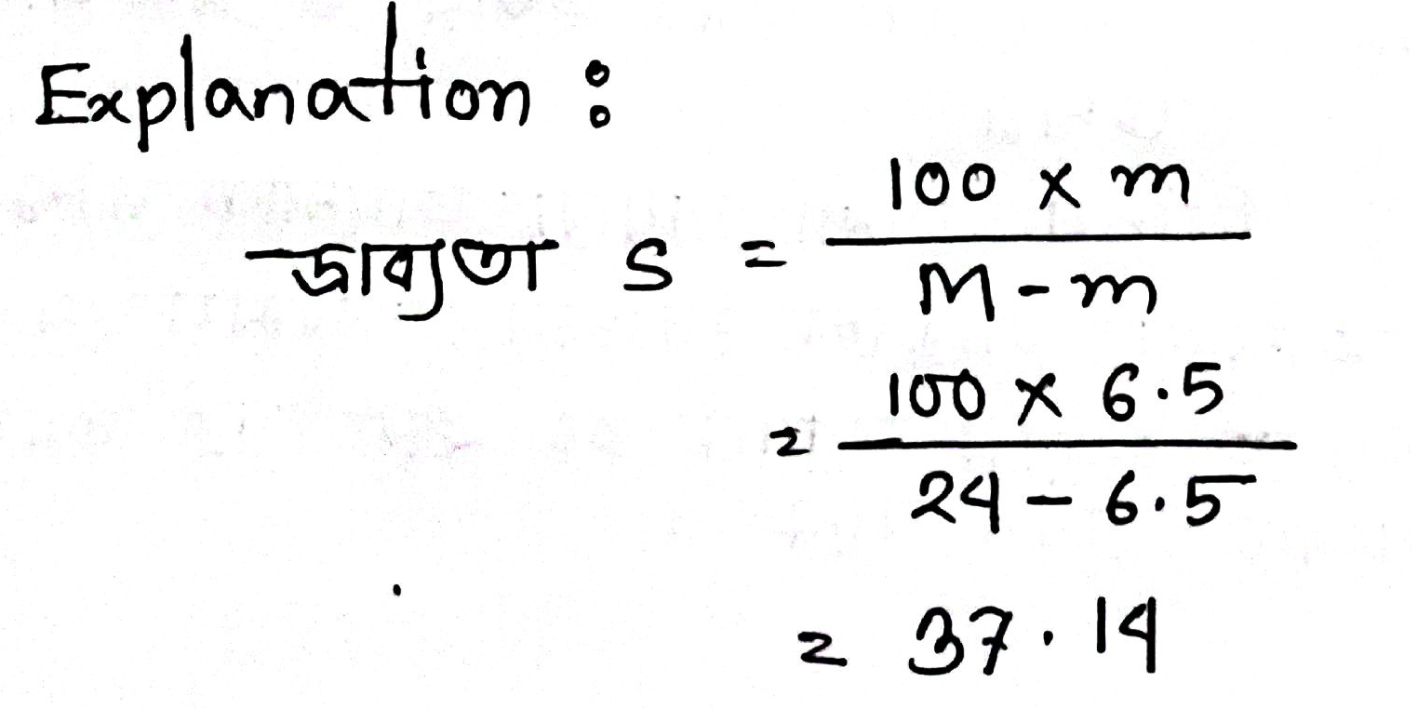 Explanation :
দ্রাব্যতা S = 100 × m / M - m
= 100 × 6.5 / 24 - 6.5
= 37.14